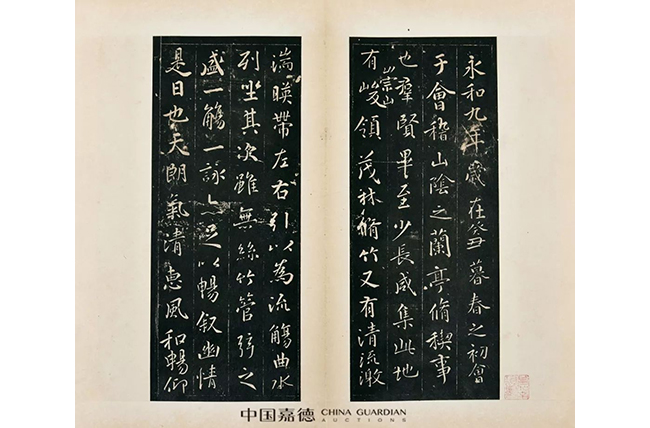 永和九年歲在癸丑暮春之初會
于會稽山陰之蘭亭脩稧事
也羣賢畢至少長咸集此地
有崇山峻領茂林脩竹又有清流激
湍暎帶左右引以為流觴曲水
列坐其次雖無絲竹管弦之
盛一觴一詠亦足以暢叙幽情
是日也天朗氣清惠風和暢仰
中国嘉德 CHINA GUARDIAN
AUCTIONS